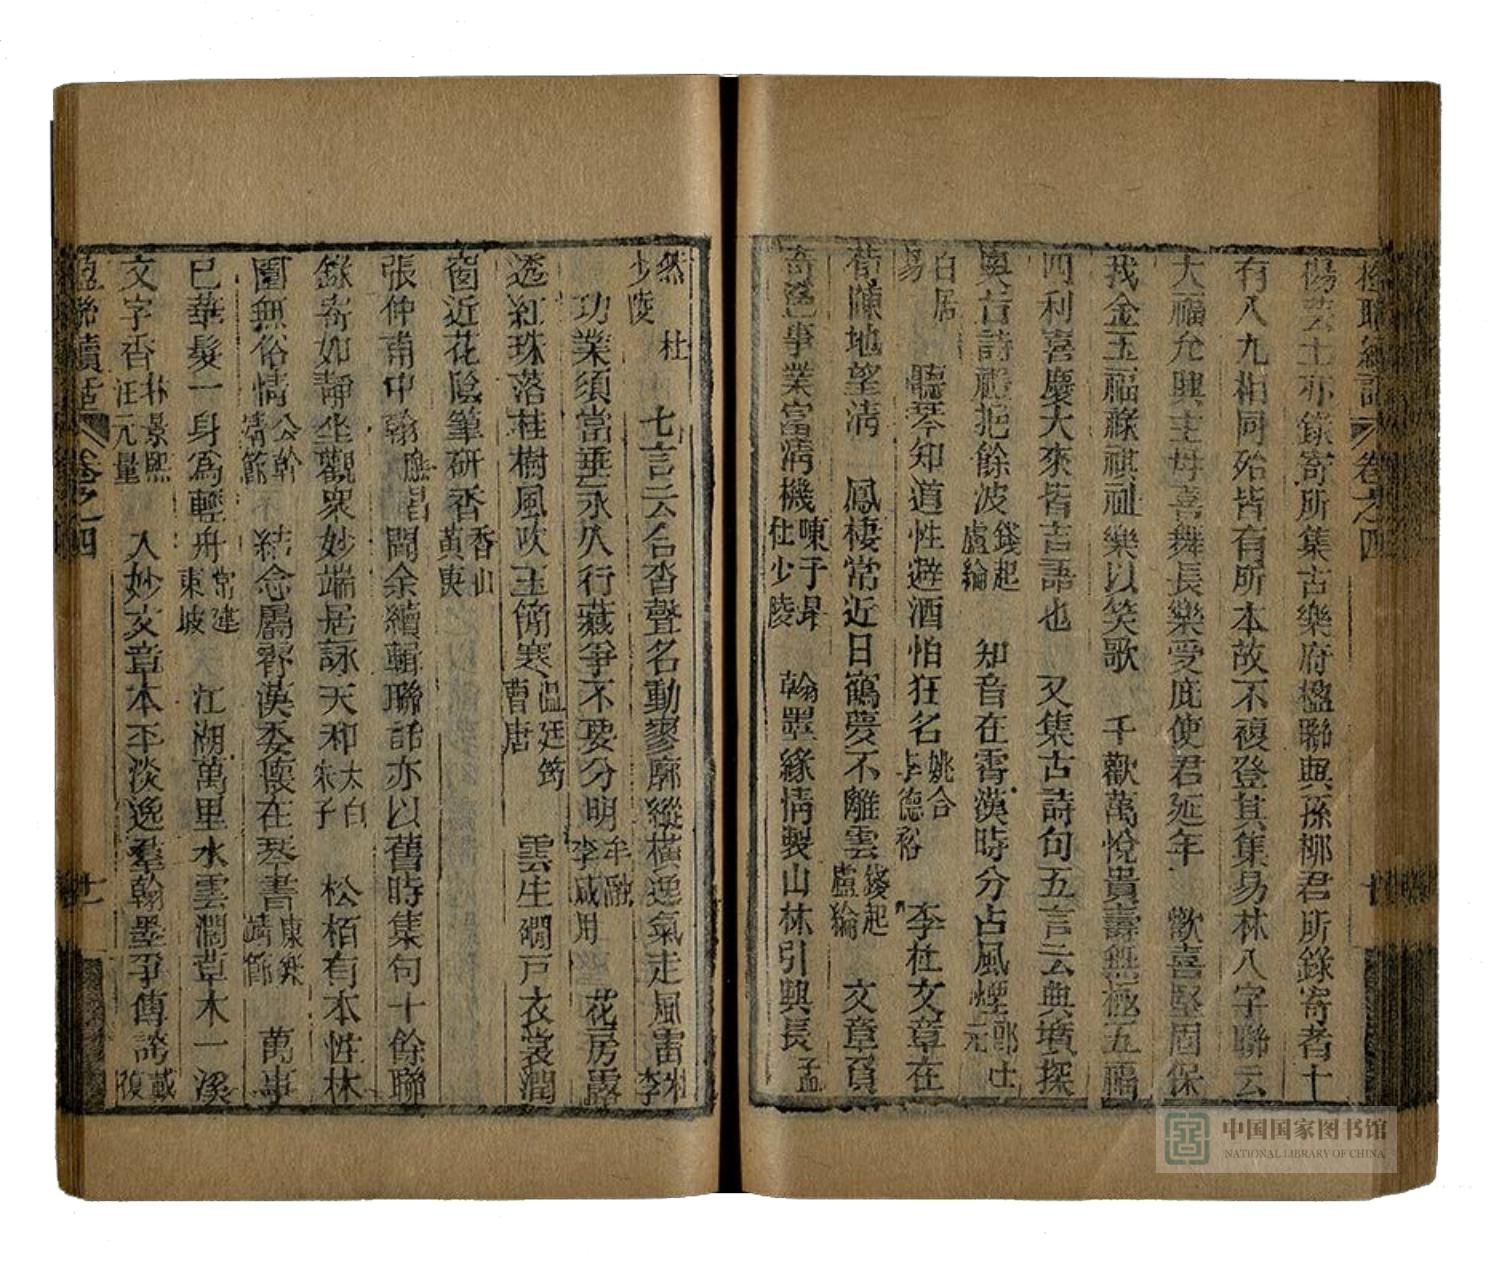 楹聯續話 卷之四 十
傷芸士亦錄寄所集古樂府楹聯與孫柳君所錄寄者十
有八九相同殆皆有所本故不複登其集易林八字聯云
大福允興主母喜舞長樂受庇使君延年 歡喜堅固保
我金玉福祿祺祉樂以笑歌 千歡萬悅貴壽無極五福
四利喜慶大來皆吉語也 又集古詩句五言云典墳探
奧旨詩禮挹餘波錢起盧綸 知音在霄漢時分占風煙
白居易 聽琴知道性避酒怕狂名姚合 李杜文章在
荀陳地望清 鳳棲常近日鶴夢不離雲錢起盧綸 文章負
奇邁事業富清機陳子昂杜少陵 翰墨緣情製山林引興長孟
然杜少陵 七言云名香聲名動寥廓縱橫逸氣走風雷
功業須當垂永久行藏爭不要分明牟融李咸用 花房露
透紅珠落桂樹風吹玉簡寒溫廷筠曹唐 雲生磵戶衣裳潤
窗近花陰筆硏香香山黃庚
張仲甫中翰應昌聞余續輯聯話亦以舊時集句十餘聯
錄寄如靜坐觀眾妙端居詠天和太白朱子 松栢有本性林
園無俗情公幹靖節 結念屬霄漢委懷在琴書康樂靖節 萬事
已華髮一身爲輕舟常建東坡 江湖萬里水雲濶草木一溪
文字香林景熙汪元量 入妙文章本平淡逸羣翰墨爭傳誇戴復
楹聯續話 卷之四 十一
中国国家图书馆
NATIONAL LIBRARY OF CHINA